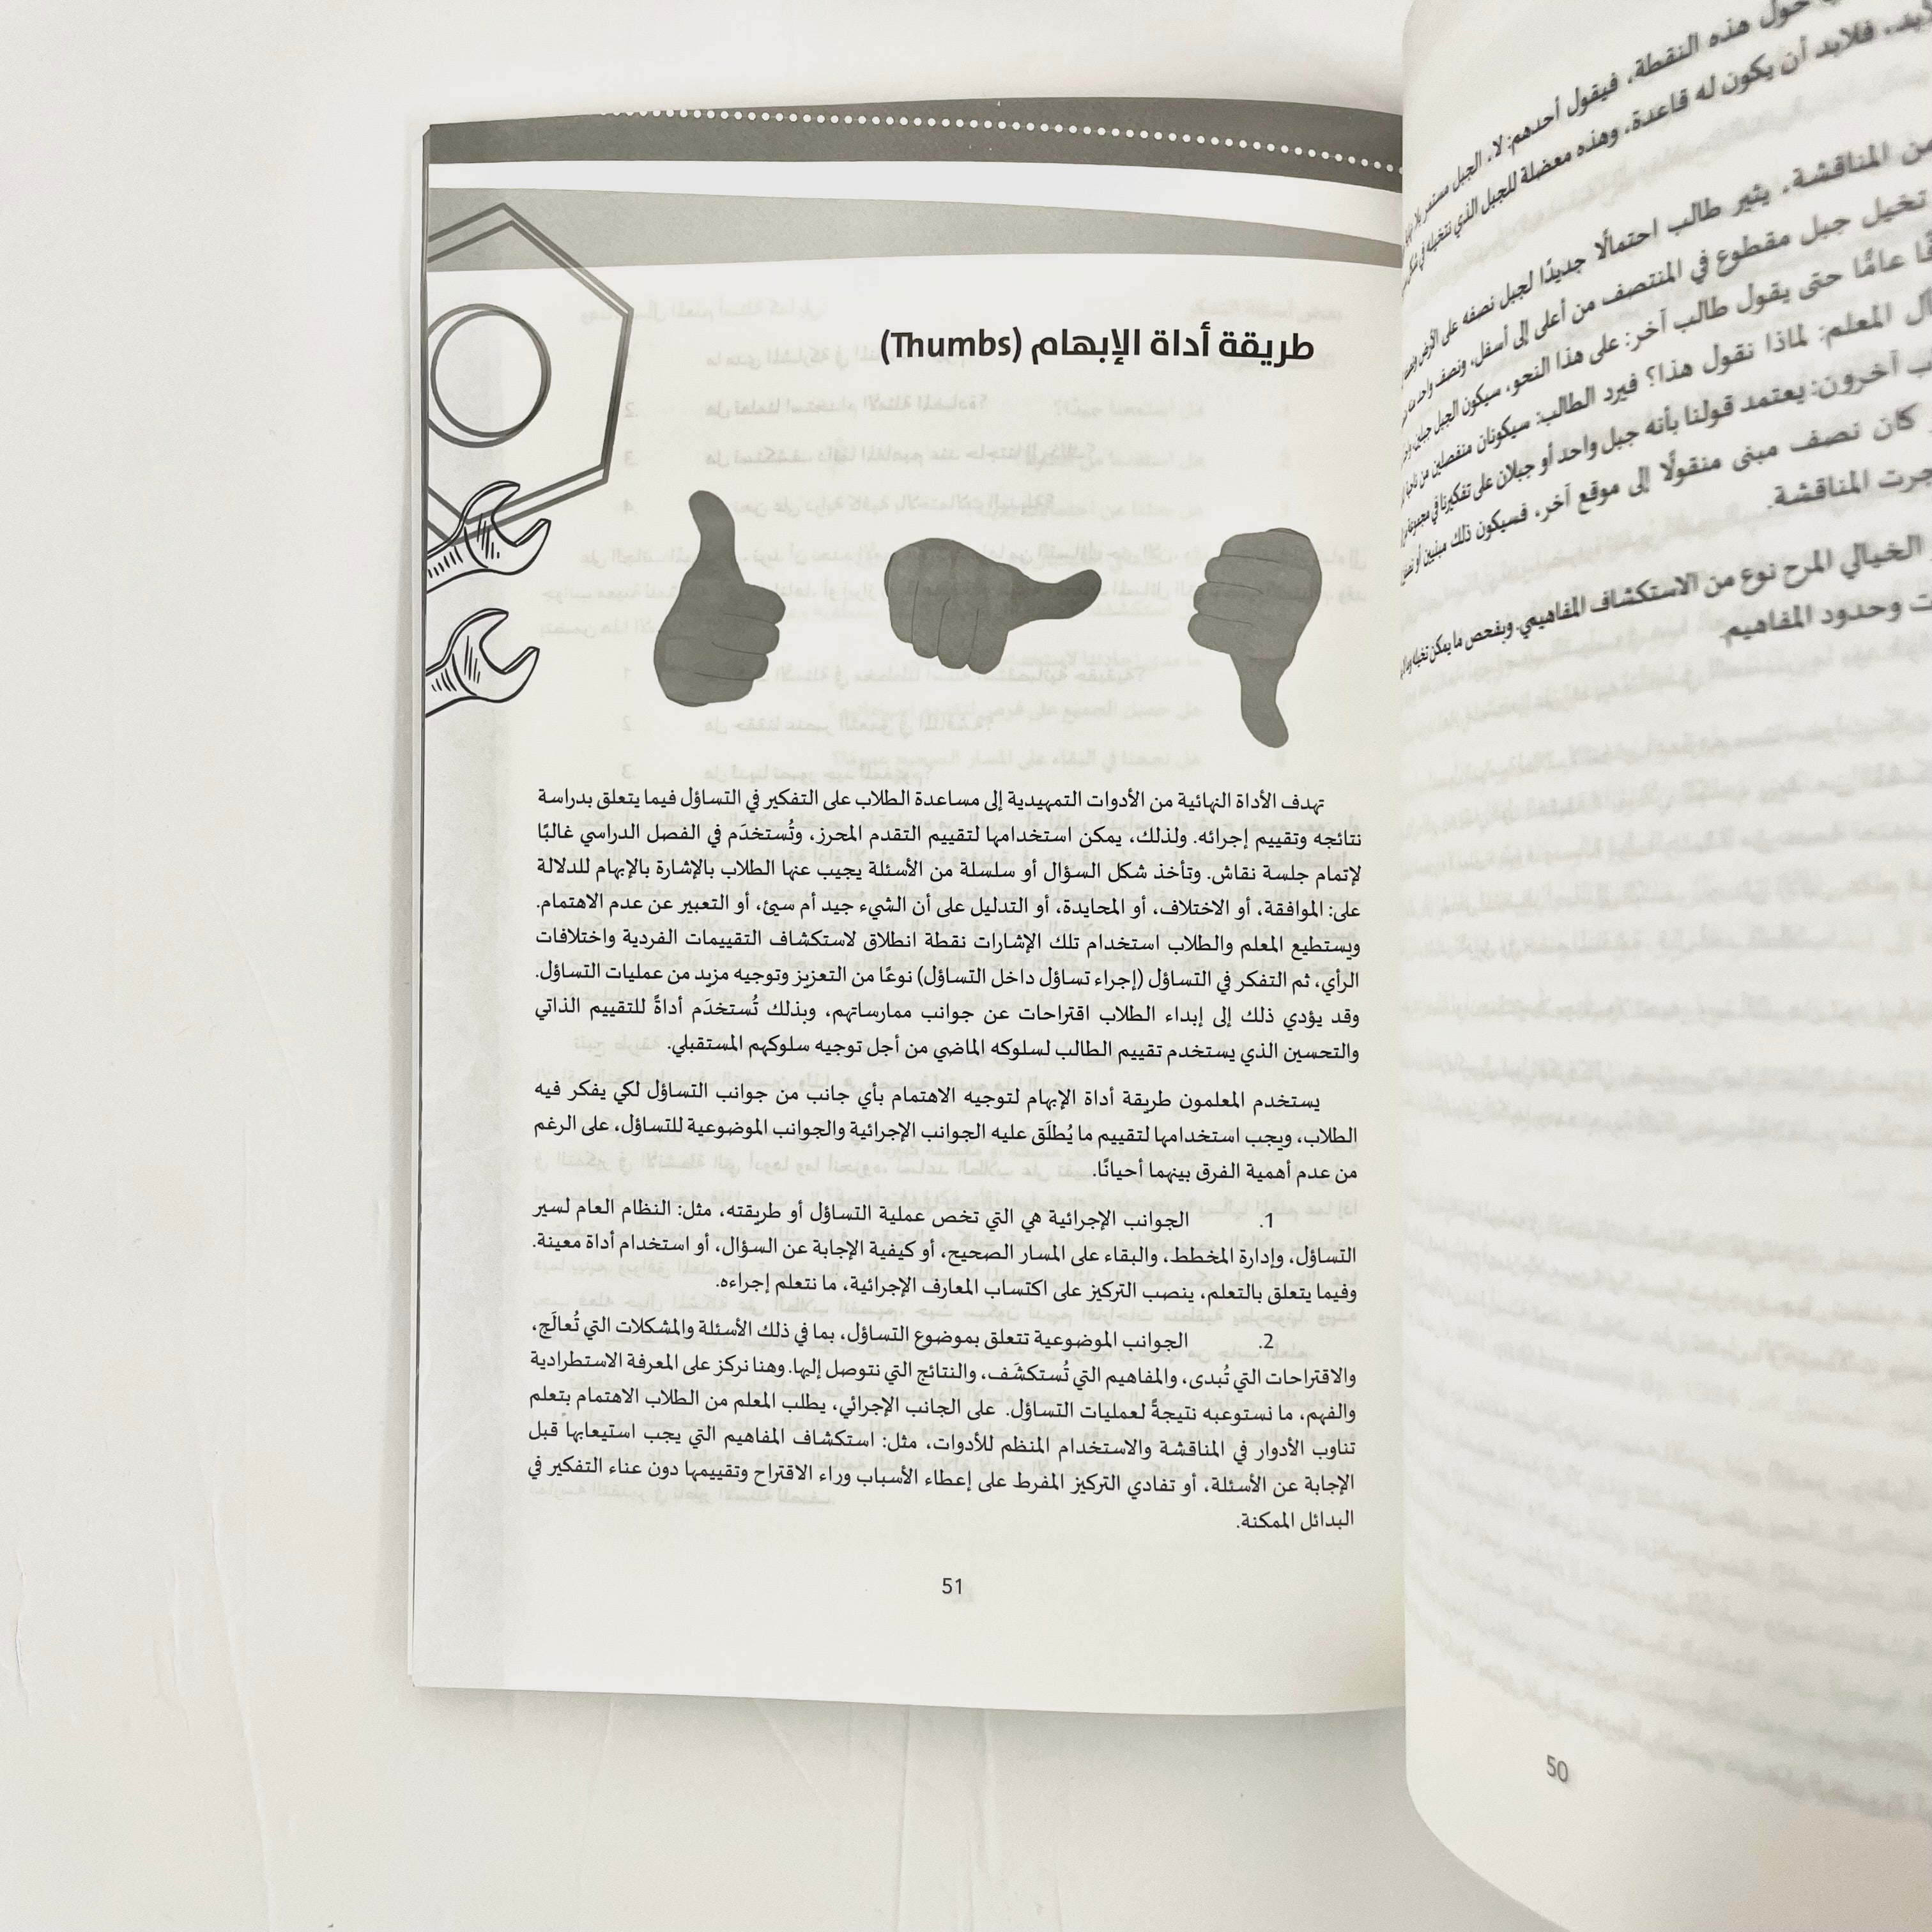 حول هذه النقطة، فيقول أحدهم: لا، الجبل مستمر بلا
فلابد أن يكون له قاعدة، وهذه معضلة للجبل الذي نتخيله في
من المناقشة، يثير طالب احتمالًا جديدًا لجبل نصفه على الأرض
تخيل جبل مقطوع في المنتصف من أعلى إلى أسفل، ونصف واحد
عامًّا حتى يقول طالب آخر: على هذا النحو، سيكون الجبل جبلين
المعلم: لماذا نقول هذا؟ فيرد الطالب: سيكونان منفصلين من
آخرون: يعتمد قولنا بأنه جبل واحد أو جبلان على تفكيرنا في
كان نصف مبنى منقولًا إلى موقع آخر، فسيكون ذلك مبنيين أو
جرت المناقشة.
الخيالي المرح نوع من الاستكشاف المفاهيمي. وبفحص ما يمكن تخيله
وحدود المفاهيم
50
طريقة أداة الإبهام (Thumbs)
تهدف الأداة النهائية من الأدوات التمهيدية إلى مساعدة الطلاب على التفكير في التساؤل فيما يتعلق بدراسة
نتائجه وتقييم إجرائه. ولذلك، يمكن استخدامها لتقييم التقدم المحرز، وتُستخدَم في الفصل الدراسي غالبًا
لإتمام جلسة نقاش. وتأخذ شكل السؤال أو سلسلة من الأسئلة يجيب عنها الطلاب بالإشارة بالإبهام للدلالة
على: الموافقة، أو الاختلاف، أو المحايدة، أو التدليل على أن الشيء جيد أم سيئ، أو التعبير عن عدم الاهتمام.
ويستطيع المعلم والطلاب استخدام تلك الإشارات نقطة انطلاق لاستكشاف التقييمات الفردية واختلافات
الرأي، ثم التفكر في التساؤل (إجراء تساؤل داخل التساؤل) نوعًا من التعزيز وتوجيه مزيد من عمليات التساؤل.
وقد يؤدي ذلك إلى إبداء الطلاب اقتراحات عن جوانب ممارساتهم، وبذلك تُستخدَم أداةً للتقييم الذاتي
والتحسين الذي يستخدم تقييم الطالب لسلوكه الماضي من أجل توجيه سلوكهم المستقبلي.
يستخدم المعلمون طريقة أداة الإبهام لتوجيه الاهتمام بأي جانب من جوانب التساؤل لكي يفكر فيه
الطلاب، ويجب استخدامها لتقييم ما يُطلَق عليه الجوانب الإجرائية والجوانب الموضوعية للتساؤل، على الرغم
من عدم أهمية الفرق بينهما أحيانًا.
1. الجوانب الإجرائية هي التي تخص عملية التساؤل أو طريقته، مثل: النظام العام لسير
التساؤل، وإدارة المخطط، والبقاء على المسار الصحيح، أو كيفية الإجابة عن السؤال، أو استخدام أداة معينة.
وفيما يتعلق بالتعلم، ينصب التركيز على اكتساب المعارف الإجرائية، ما نتعلم إجراءه.
2. الجوانب الموضوعية تتعلق بموضوع التساؤل، بما في ذلك الأسئلة والمشكلات التي تُعالَج،
والاقتراحات التي تُبدى، والمفاهيم التي تُستكشَف، والنتائج التي نتوصل إليها. وهنا نركز على المعرفة الاستطرادية
والفهم، ما نستوعبه نتيجةً لعمليات التساؤل. على الجانب الإجرائي، يطلب المعلم من الطلاب الاهتمام بتعلم
تناوب الأدوار في المناقشة والاستخدام المنظم للأدوات، مثل: استكشاف المفاهيم التي يجب استيعابها قبل
الإجابة عن الأسئلة، أو تفادي التركيز المفرط على إعطاء الأسباب وراء الاقتراح وتقييمها دون عناء التفكير في
البدائل الممكنة.
51